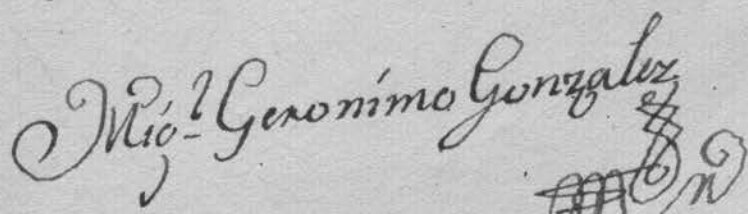 Mig.l Geronimo Gonzalez